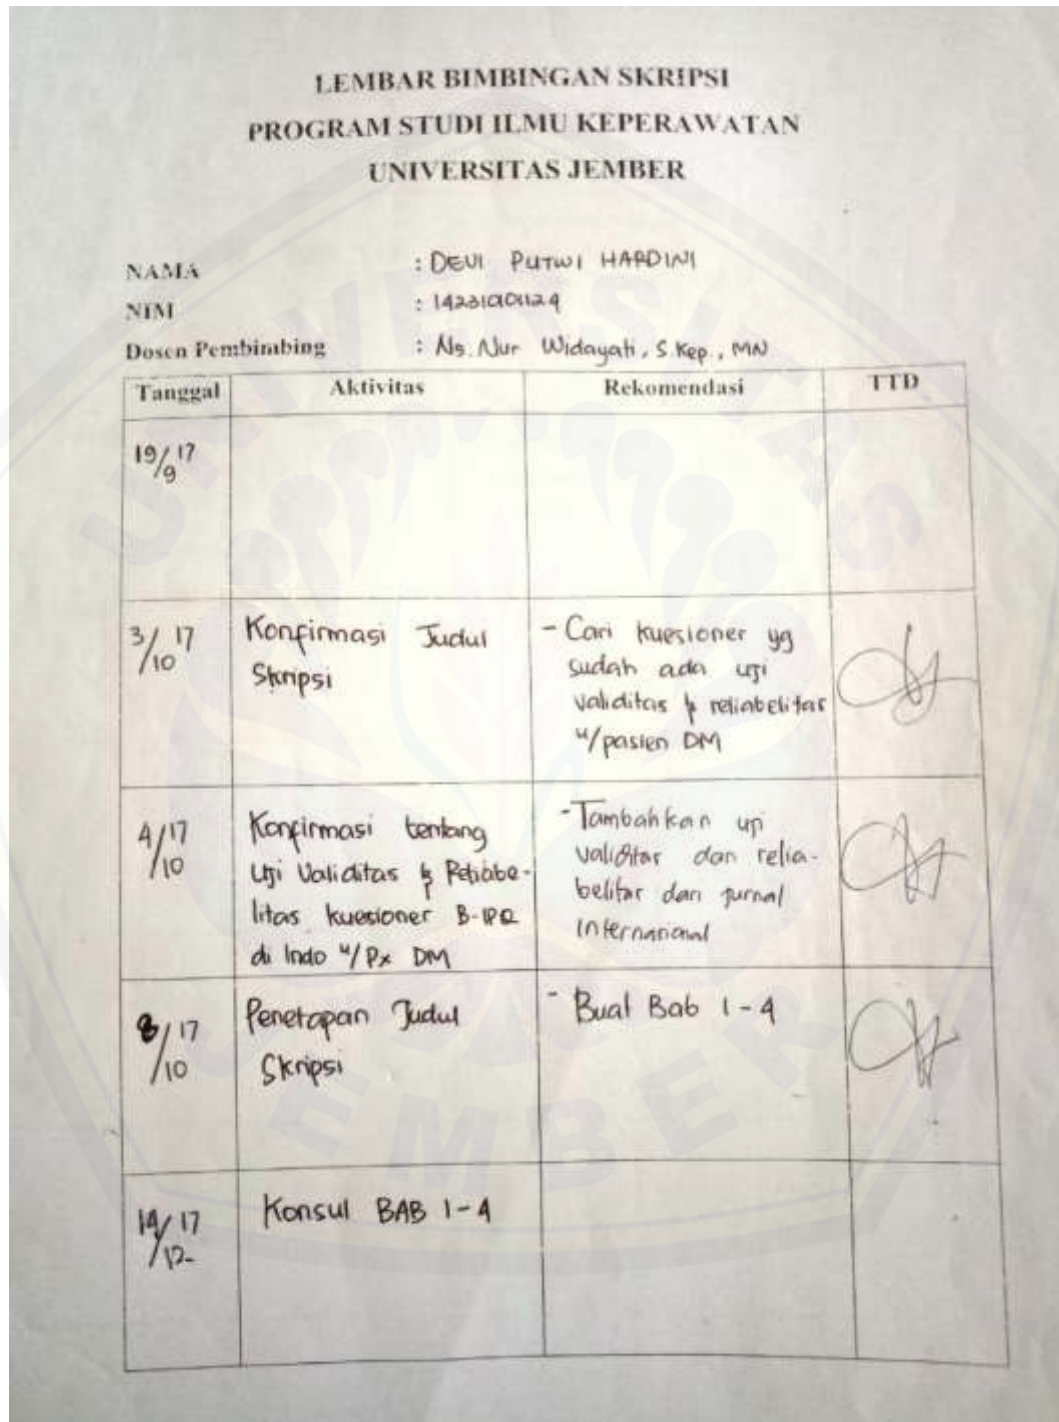 LEMBAR BIMBINGAN SKRIPSI
PROGRAM STUDI ILMU KEPERAWATAN
UNIVERSITAS JEMBER
NAMA : DEVI PUTWI HARDINI
NIM :
Dosen Pembimbing : Ns. Nur Widayati, S.Kep., MN
Tanggal Aktivitas Rekomendasi TTD
19/9 17
3/10 17
Konfirmasi Judul
Skripsi
- Cari kuesioner yg
sudah ada uji
validitas & reliabelitas
u/pasien DM
4/10 17
Konfirmasi tentang
Uji Validitas & Reliabe-
litas kuesioner B-IPQ
di Indo u/ Px DM
- Tambahkan uji
validitas dan relia-
belitas dari jurnal
Internasional
8/10 17
Penetapan Judul
Skripsi
- Buat Bab 1-4
14/12 17
Konsul BAB 1-4
UNIVERSITAS
JEMBER